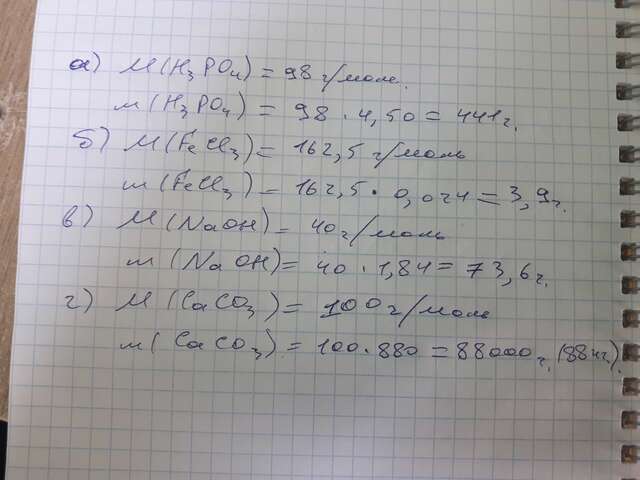 а) M(H₃PO₄) = 98 г/моль.
m(H₃PO₄) = 98 · 4,50 = 441 г.
б) M(FeCl₃) = 162,5 г/моль
m(FeCl₃) = 162,5 · 0,024 = 3,9 г.
в) M(NaOH) = 40 г/моль
m(NaOH) = 40 · 1,84 = 73,6 г.
г) M(CaCO₃) = 100 г/моль
m(CaCO₃) = 100 · 880 = 88000 г. (88 кг).